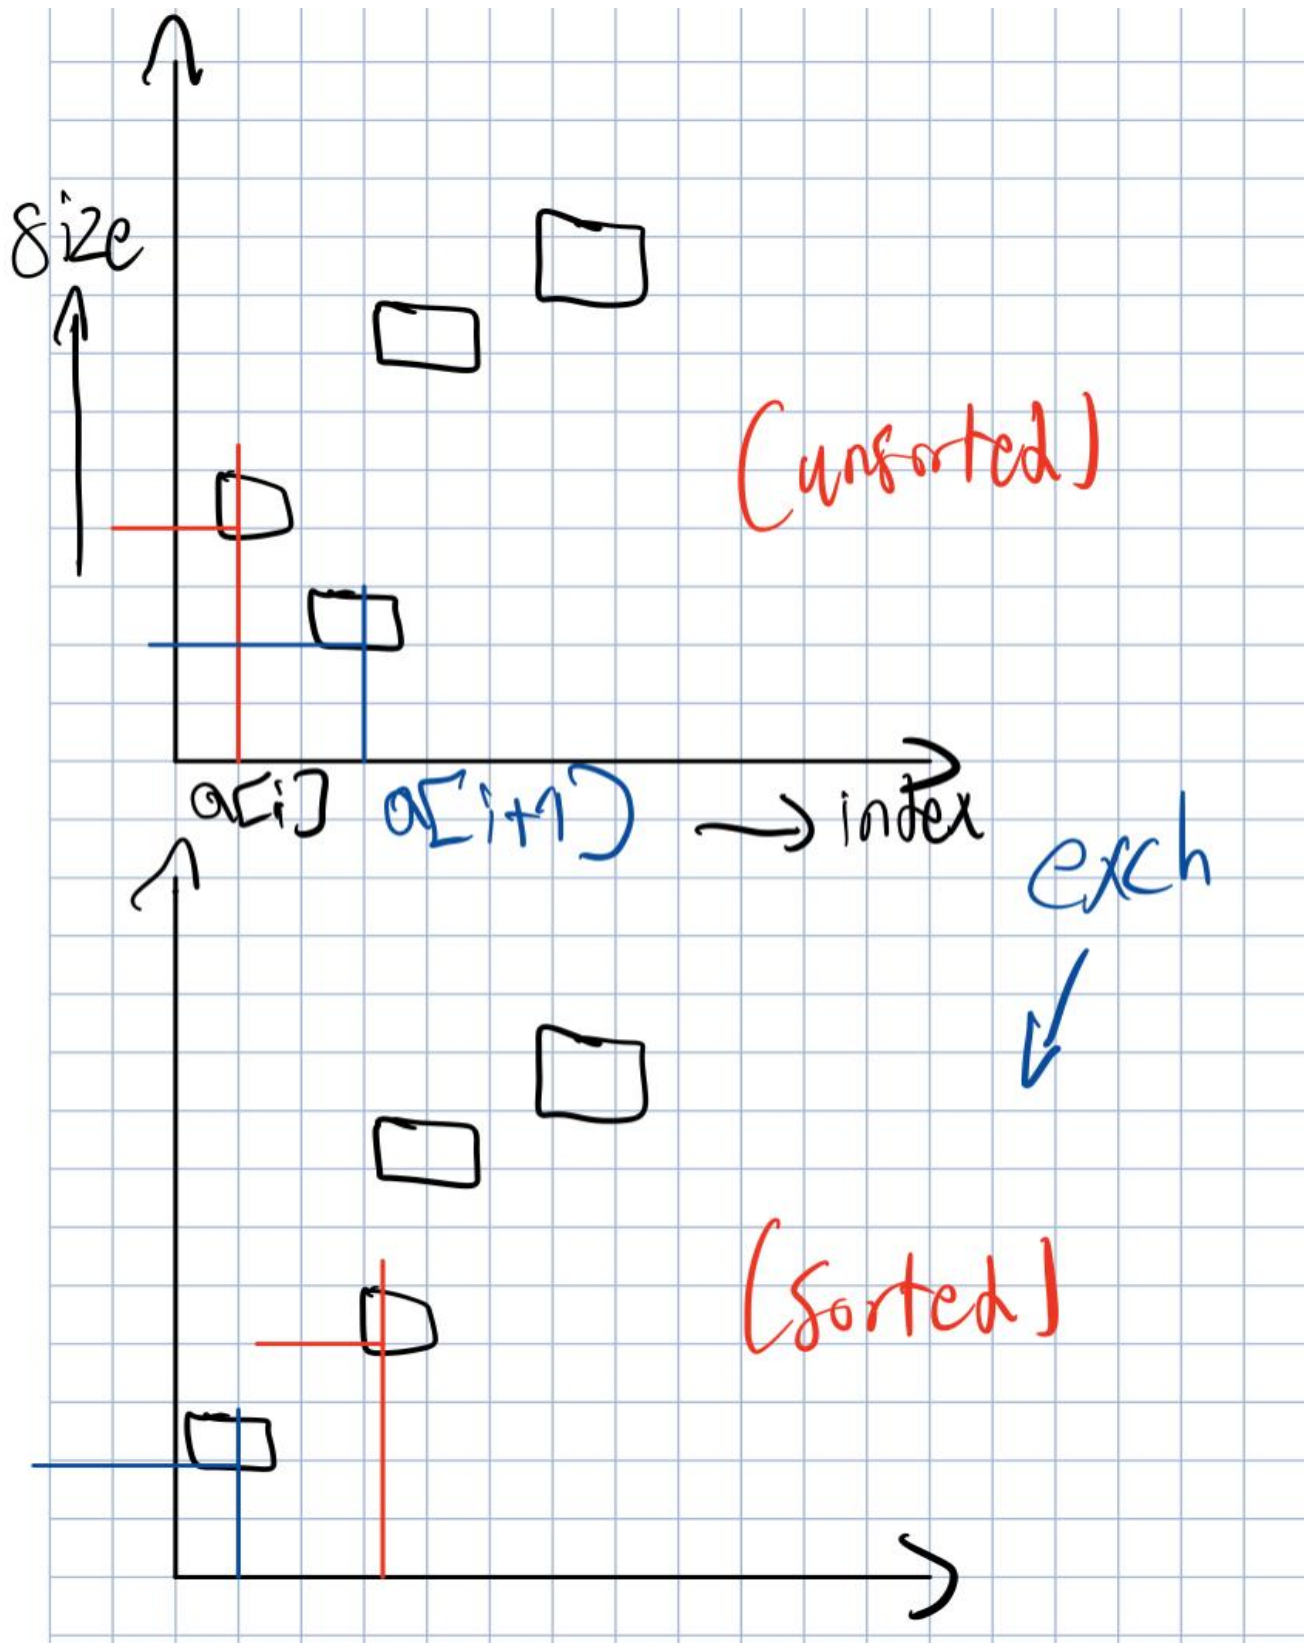 size
(unsorted)
a[i] a[i+1] → index
exch
(sorted)